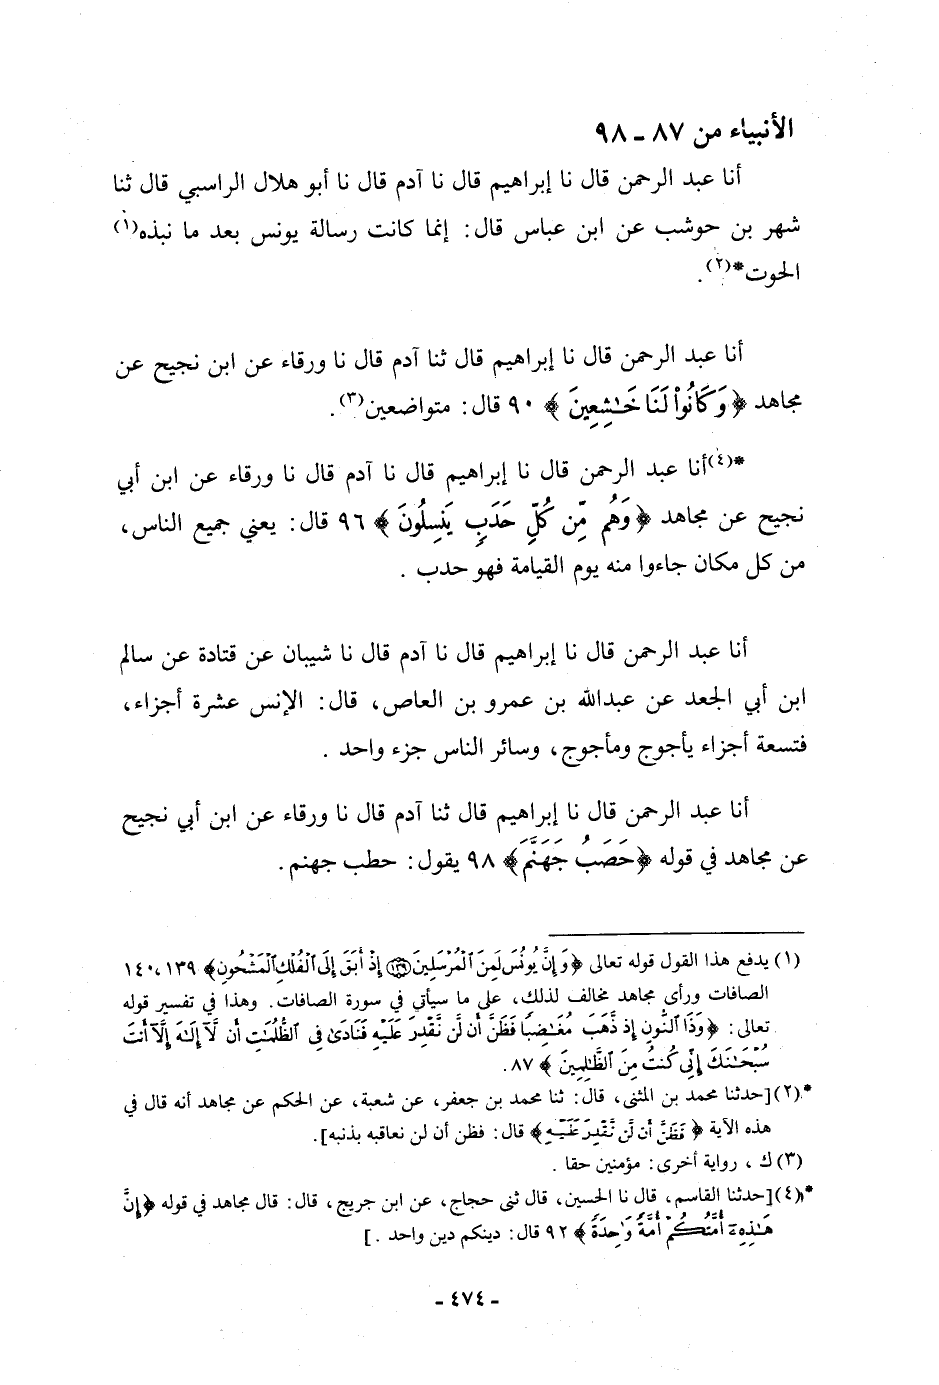 الأنبياء من ٨٧ ـ ٩٨
أنا عبد الرحمن قال نا إبراهيم قال نا آدم قال نا أبو هلال الراسبي قال ثنا
شهر بن حوشب عن ابن عباس قال: إنما كانت رسالة يونس بعد ما نبذه(١)
الحوت*(٢).
أنا عبد الرحمن قال نا إبراهيم قال ثنا آدم قال نا ورقاء عن ابن نجيح عن
مجاهد ﴿وَكَانُواْ لَنَا خَٰشِعِينَ﴾ ٩٠ قال: متواضعين(٣).
*(٤)أنا عبد الرحمن قال نا إبراهيم قال نا آدم قال نا ورقاء عن ابن أبي
نجيح عن مجاهد ﴿وَهُم مِّن كُلِّ حَدَبٍ يَنسِلُونَ﴾ ٩٦ قال: يعني جميع الناس،
من كل مكان جاءوا منه يوم القيامة فهو حدب .
أنا عبد الرحمن قال نا إبراهيم قال نا آدم قال نا شيبان عن قتادة عن سالم
ابن أبي الجعد عن عبدالله بن عمرو بن العاص، قال: الإنس عشرة أجزاء،
فتسعة أجزاء يأجوج ومأجوج، وسائر الناس جزء واحد .
أنا عبد الرحمن قال نا إبراهيم قال ثنا آدم قال نا ورقاء عن ابن أبي نجيح
عن مجاهد في قوله ﴿حَصَبُ جَهَنَّمَ﴾ ٩٨ يقول: حطب جهنم.
(١) يدفع هذا القول قوله تعالى ﴿وَإِنَّ يُونُسَ لَمِنَ ٱلْمُرْسَلِينَ ١٣٩ إِذْ أَبَقَ إِلَى ٱلْفُلْكِ ٱلْمَشْحُونِ﴾ ١٣٩، ١٤٠
الصافات ورأي مجاهد مخالف لذلك، على ما سيأتي في سورة الصافات. وهذا في تفسير قوله
تعالى: ﴿وَذَا ٱلنُّونِ إِذ ذَّهَبَ مُغَٰضِبًا فَظَنَّ أَن لَّن نَّقْدِرَ عَلَيْهِ فَنَادَىٰ فِى ٱلظُّلُمَٰتِ أَن لَّآ إِلَٰهَ إِلَّآ أَنتَ
سُبْحَٰنَكَ إِنِّى كُنتُ مِنَ ٱلظَّٰلِمِينَ﴾ ٨٧.
*(٢)[حدثنا محمد بن المثنى، قال: ثنا محمد بن جعفر، عن شعبة، عن الحكم عن مجاهد أنه قال في
هذه الآية ﴿فَظَنَّ أَن لَّن نَّقْدِرَ عَلَيْهِ﴾ قال: فظن أن لن نعاقبه بذنبه].
(٣) ك ، رواية أخرى: مؤمنين حقا .
*(٤)[حدثنا القاسم، قال نا الحسين، قال ثنى حجاج، عن ابن جريج، قال: قال مجاهد في قوله ﴿إِنَّ
هَٰذِهِۦٓ أُمَّتُكُمْ أُمَّةً وَٰحِدَةً﴾ ٩٢ قال: دينكم دين واحد .]
ـ ٤٧٤ ـ